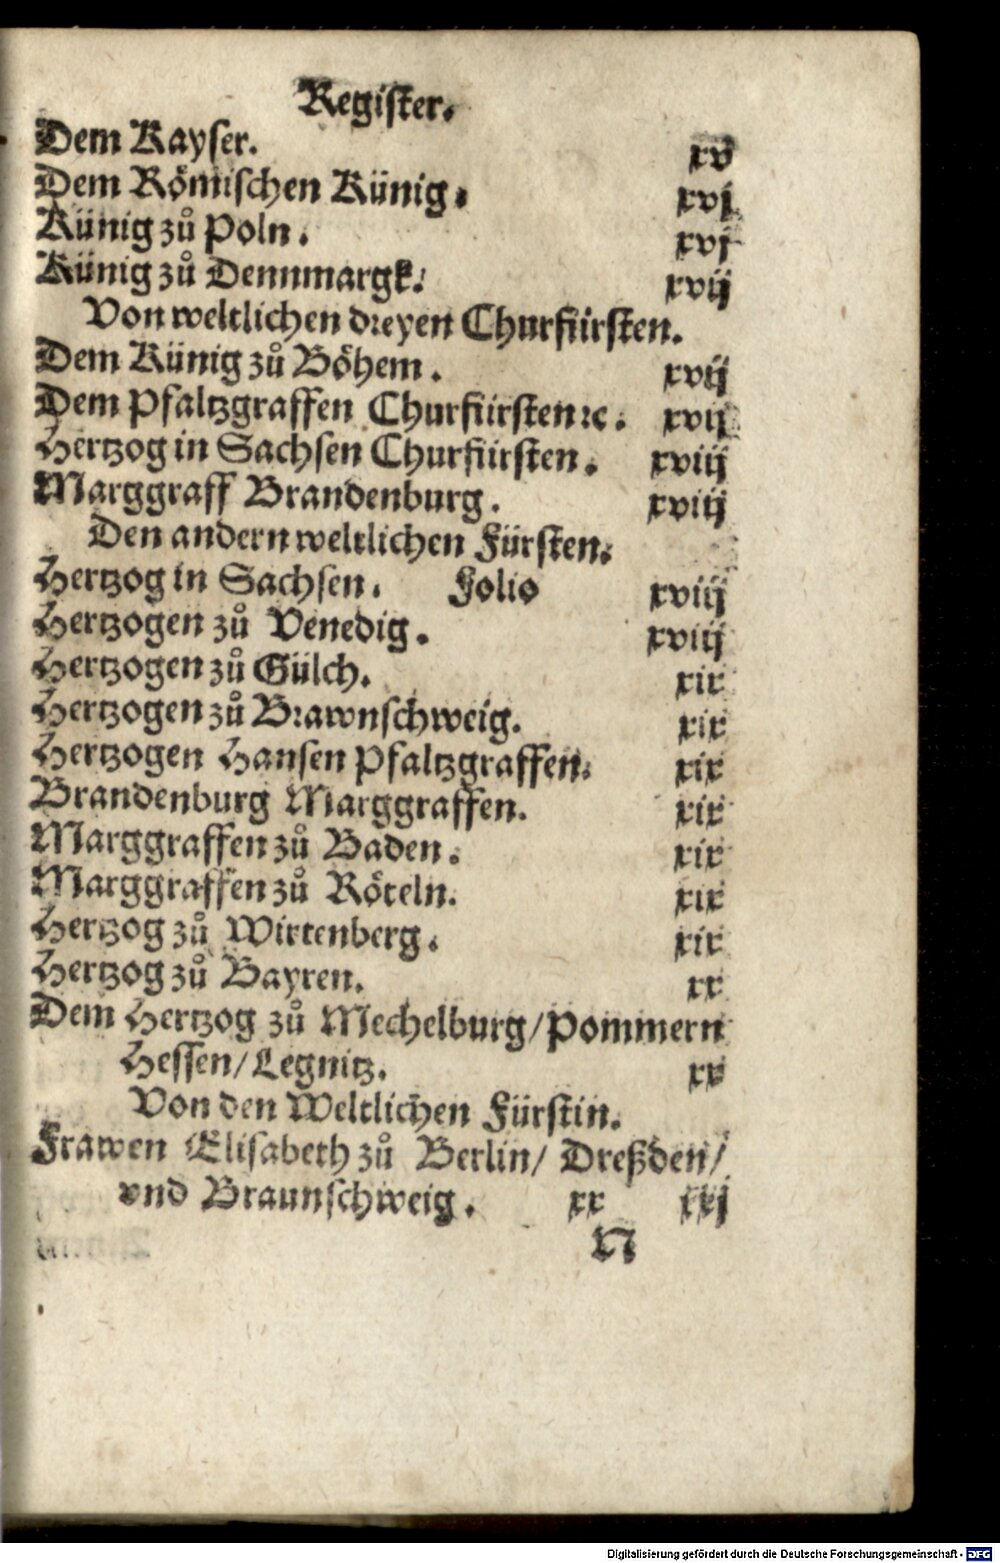 Register.
Dem Kayser. xv
Dem Römischen Künig. xvj
Künig zů Poln. xvj
Künig zů Dennmargk. xvij
Von weltlichen dreyen Churfürsten.
Dem Künig zů Böhem. xvij
Dem Pfaltzgraffen Churfürsten ꝛc. xvij
Hertzog in Sachsen Churfürsten. xviij
Marggraff Brandenburg. xviij
Den andern weltlichen Fürsten.
Hertzog in Sachsen. Folio xviij
Hertzogen zů Venedig. xviij
Hertzogen zů Gülch. xix
Hertzogen zů Brawnschweig. xix
Hertzogen Hansen Pfaltzgraffen. xix
Brandenburg Marggraffen. xix
Marggraffen zů Baden. xix
Marggraffen zů Röteln. xix
Hertzog zů Wirtenberg. xix
Hertzog zů Bayren. xx
Dem Hertzog zů Mechelburg/Pommern
Hessen/Legnitz. xx
Von den Weltlichen Fürstin.
Frawen Elisabeth zů Berlin/ Dreßden/
vnd Braunschweig. xx xxj
N
Digitalisierung gefördert durch die Deutsche Forschungsgemeinschaft - DFG